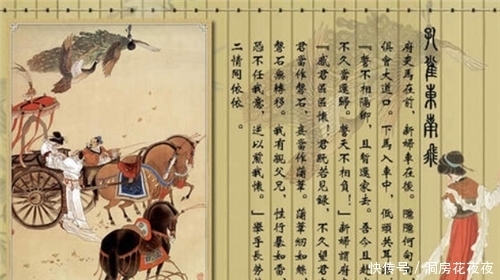 孔雀東南飛
府吏馬在前，新婦車在後。隱隱何甸
俱會大道口。下馬入車中，低頭共耳
『誓不相隔卿，且暫還家去。吾今且赴
不久當還歸。誓天不相負！』新婦謂府
『感君區區懷！君既若見錄，不久望君
君當作磐石，妾當作蒲葦。蒲葦紉如絲
磐石無轉移。我有親父兄，性行暴如雷
恐不任我意，逆以煎我懷。』舉手長勞
二情同依依。
快传号／洞房花夜夜